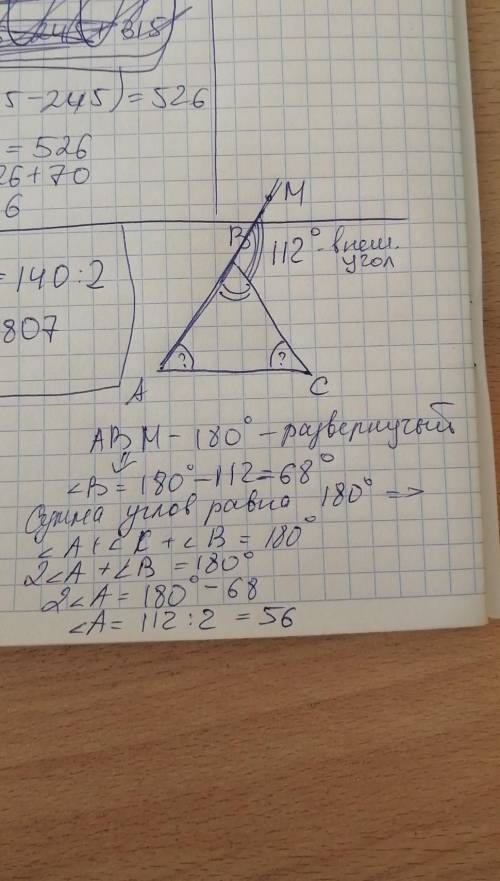 5-245)=526
=526
26+70
6
=140:2
807
M
B
112° - внеш.
угол
?
?
A
C
ABM - 180° - развернутый
⇓
∠B = 180° - 112 = 68°
Сумма углов равна 180° =>
∠A + ∠C + ∠B = 180°
2∠A + ∠B = 180°
2∠A = 180° - 68
∠A = 112 : 2 = 56